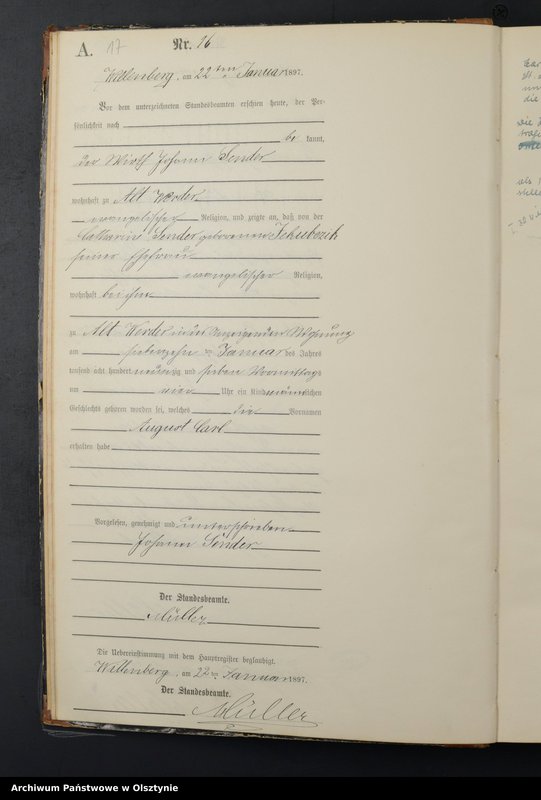 A. 17 Nr. 16
Willenberg, am 22 ten Januar 1897.
Vor dem unterzeichneten Standesbeamten erschien heute, der Per-
sönlichkeit nach
be kannt,
der Wirth Johann Sender
wohnhaft zu Alt Werder
evangelischer Religion, und zeigte an, daß von der
Catharine Sender geborenen
seiner Ehefrau
evangelischer Religion,
wohnhaft bei ihm
zu Alt Werder in der Wohnung
am siebenzehn ten Januar des Jahres
tausend acht hundert neunzig und sieben Vormittags
um vier Uhr ein Kind männlichen
Geschlechts geboren worden sei, welches die Vornamen
August Carl
erhalten habe
Vorgelesen, genehmigt und unterschrieben
Johann Sender
Der Standesbeamte.
Müller
Die Uebereinstimmung mit dem Hauptregister beglaubigt.
Willenberg, am 22 ten Januar 1897.
Der Standesbeamte.
Müller
die
als
Archiwum Państwowe w Olsztynie